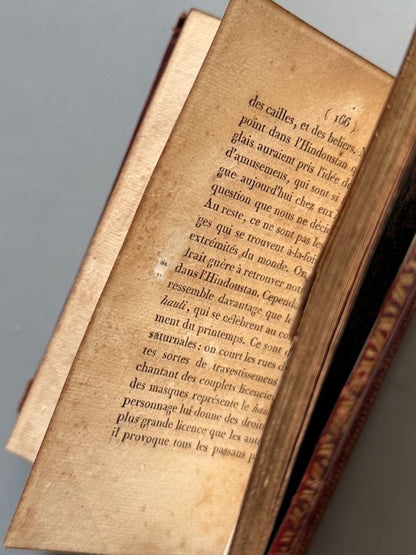 ( 166 )
des cailles, et des beliers.
point dans l'Hindoustan q
glais auraient pris l'idée de
d'amusemens, qui sont si
gue aujourd'hui chez eux
question que nous ne décid
Au reste, ce ne sont pas les
ges qui se trouvent à-la-foi
extrémités du monde. On
drait guère à retrouver not
dans l'Hindoustan. Cepend
ressemble davantage que le
hauli, qui se célèbrent au co
ment du printemps. Ce sont d
saturnales : on court les rues d
tes sortes de travestissemens
chantant des couplets licencie
des masques représente le hau
personnage lui donne des droits
plus grande licence que les aut
il provoque tous les passans p